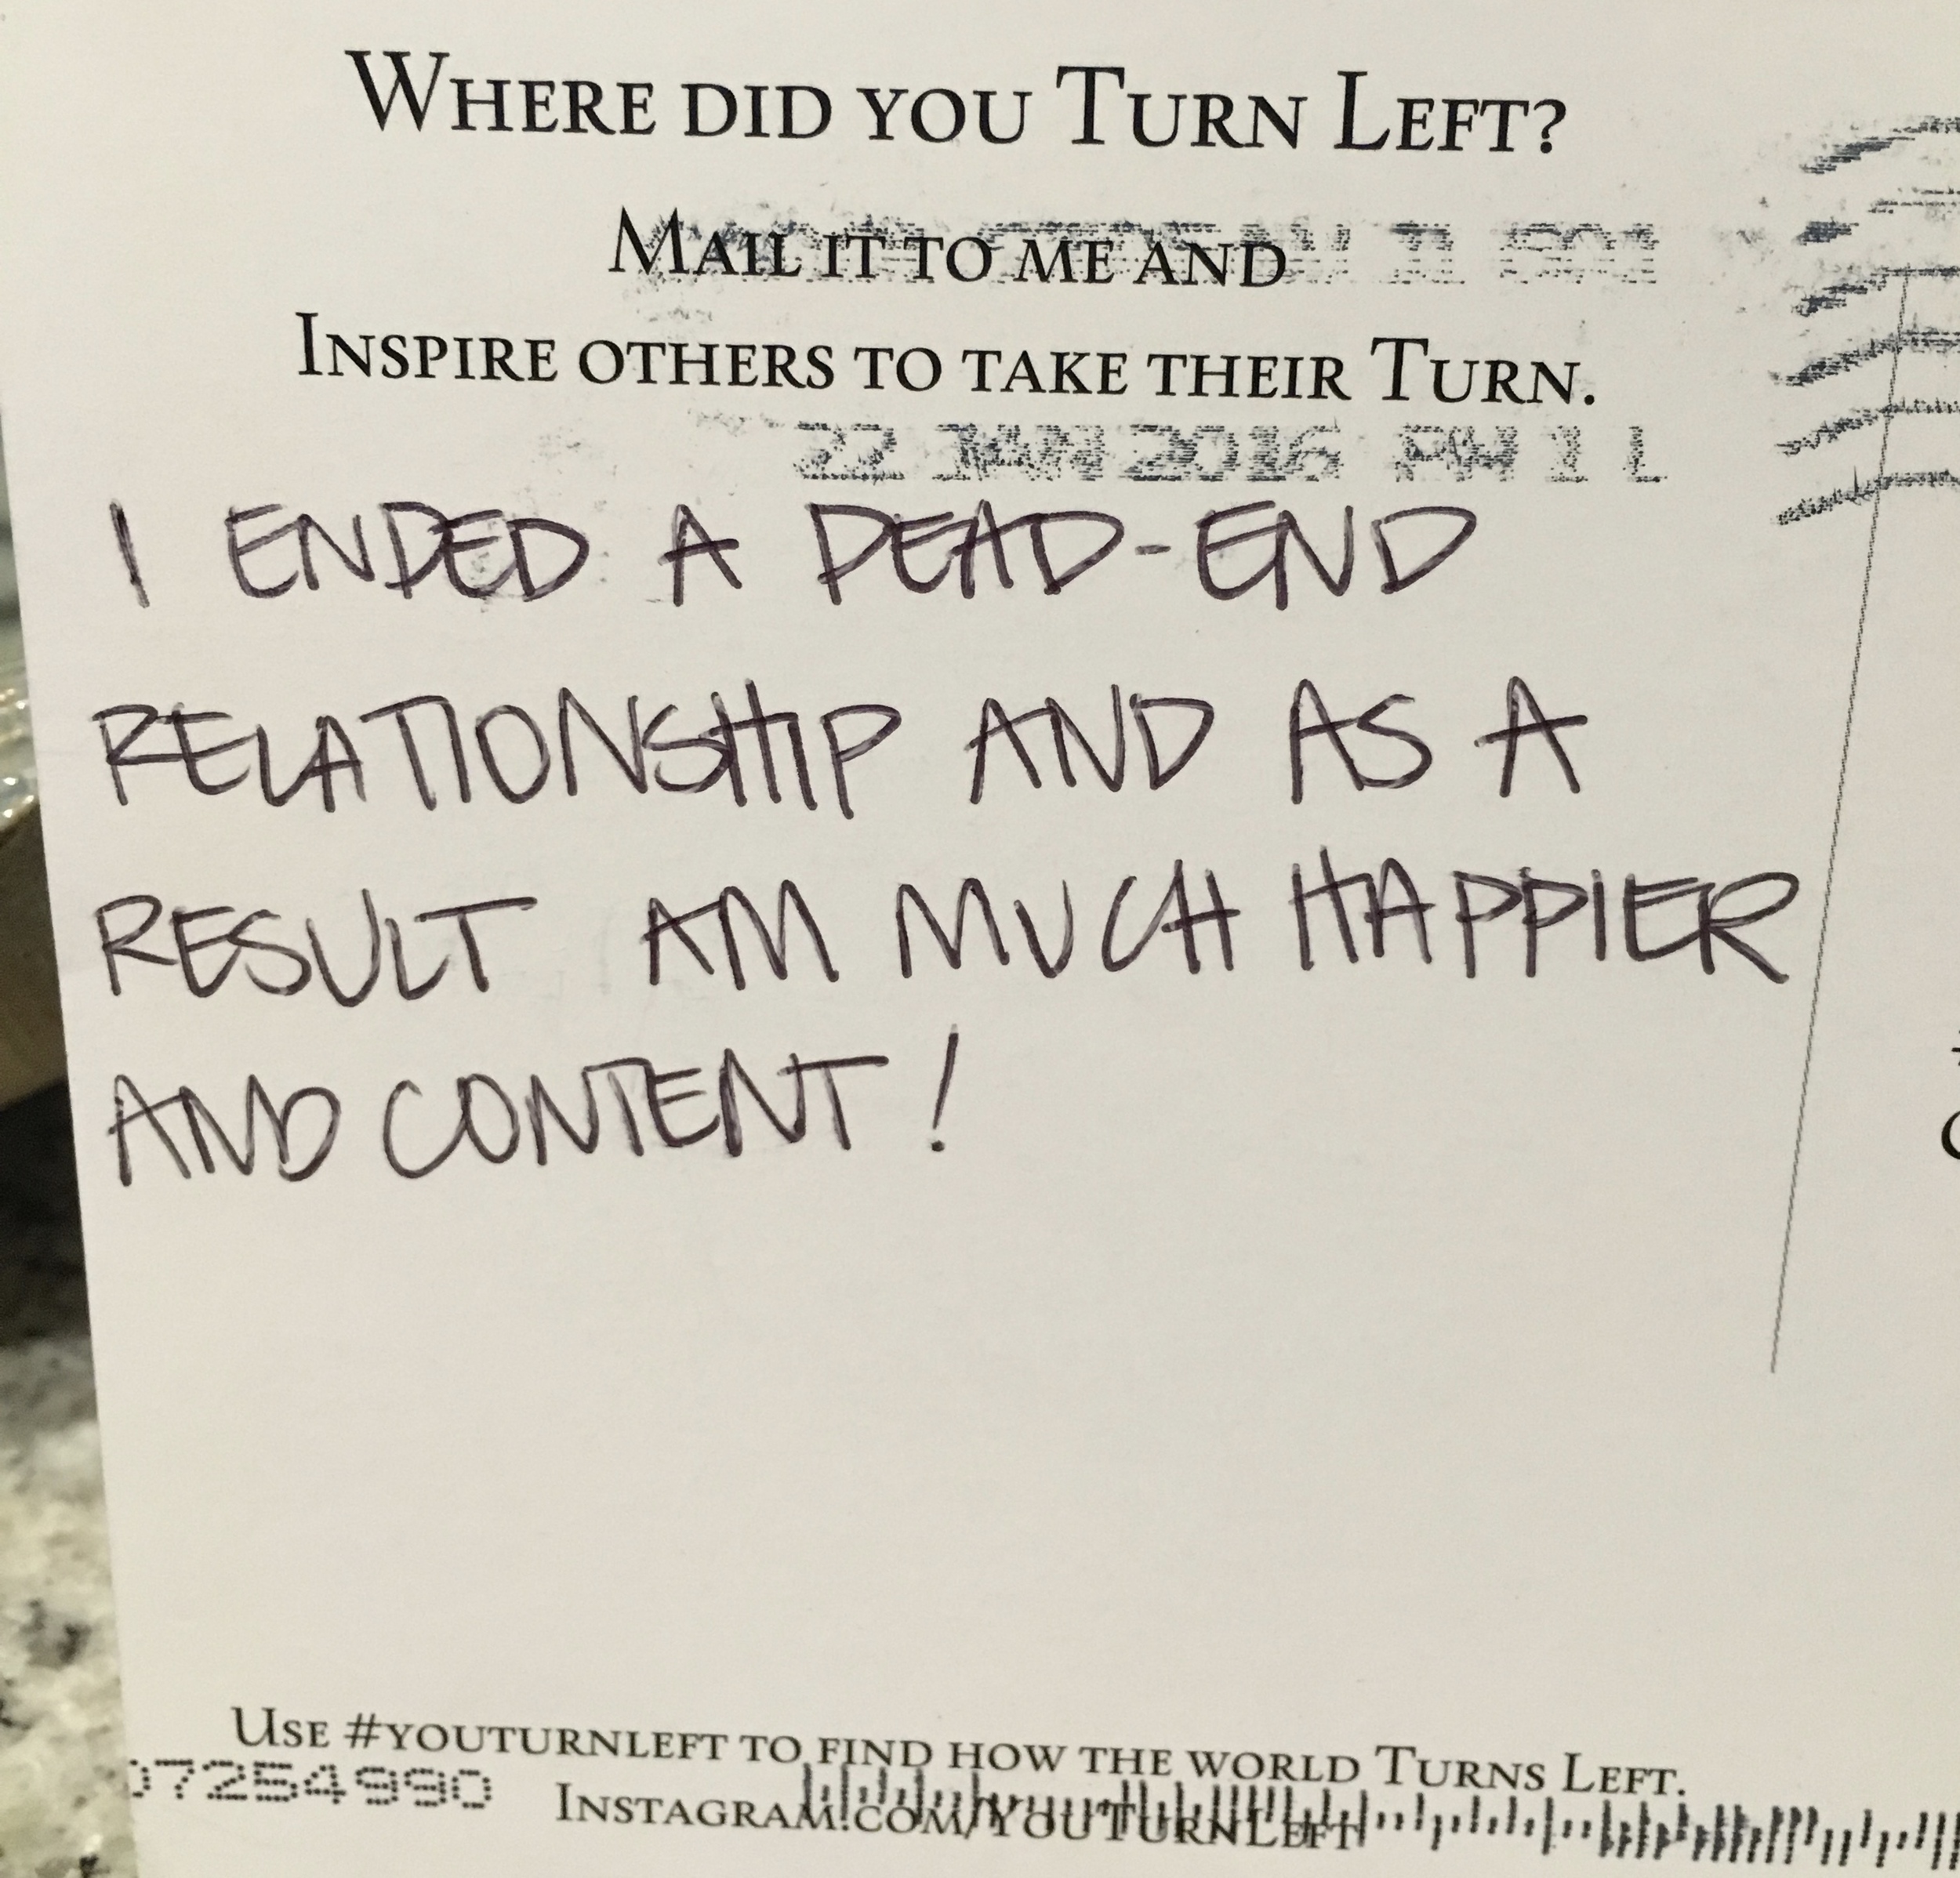 Where did you Turn Left?
Mail it to me and
Inspire others to take their Turn.
22 JAN 2016 PM 1 L
I ENDED A DEAD-END
RELATIONSHIP AND AS A
RESULT AM MUCH HAPPIER
AND CONTENT!
Use #youturnleft to find how the world Turns Left.
07254990
Instagram.com/YouTurnLeft